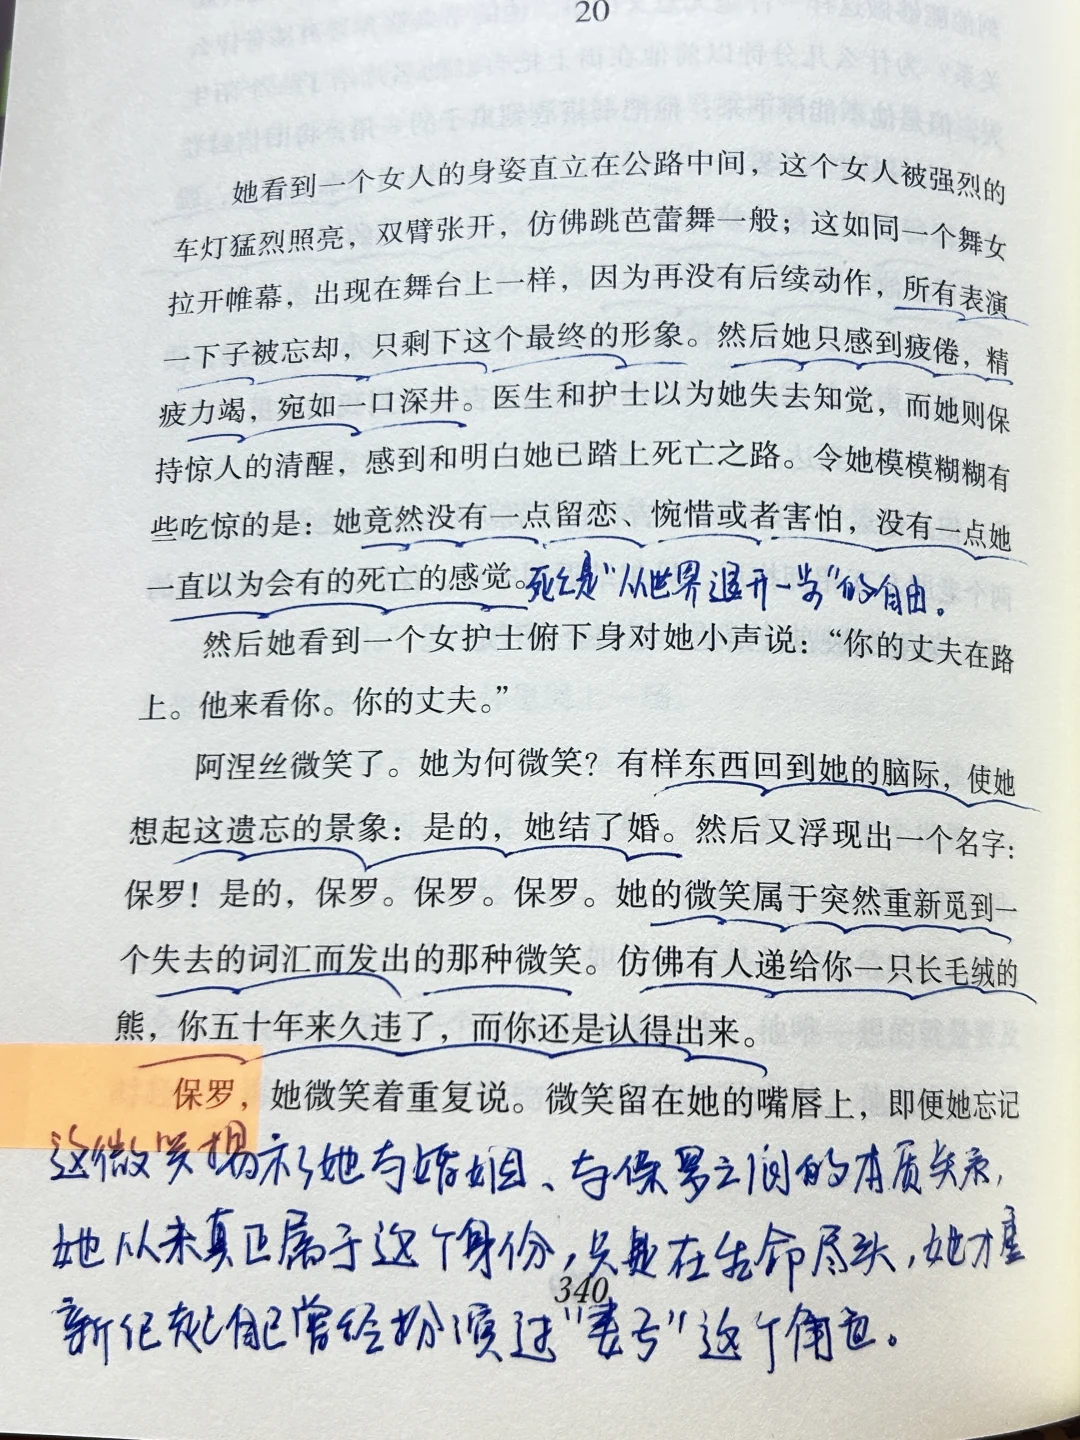 20
她看到一个女人的身姿直立在公路中间，这个女人被强烈的
车灯猛烈照亮，双臂张开，仿佛跳芭蕾舞一般；这如同一个舞女
拉开帷幕，出现在舞台上一样，因为再没有后续动作，所有表演
一下子被忘却，只剩下这个最终的形象。然后她只感到疲倦，精
疲力竭，宛如一口深井。医生和护士以为她失去知觉，而她则保
持惊人的清醒，感到和明白她已踏上死亡之路。令她模模糊糊有
些吃惊的是：她竟然没有一点留恋、惋惜或者害怕，没有一点她
一直以为会有的死亡的感觉。死亡是“从世界退开一步”的自由。
然后她看到一个女护士俯下身对她小声说：“你的丈夫在路
上。他来看你。你的丈夫。”
阿涅丝微笑了。她为何微笑？有样东西回到她的脑际，使她
想起这遗忘的景象：是的，她结了婚。然后又浮现出一个名字：
保罗！是的，保罗。保罗。保罗。她的微笑属于突然重新觅到一
个失去的词汇而发出的那种微笑。仿佛有人递给你一只长毛绒的
熊，你五十年来久违了，而你还是认得出来。
保罗，她微笑着重复说。微笑留在她的嘴唇上，即便她忘记
这微笑揭示了她与婚姻、与保罗之间的本质关系，
她从未真正属于这个身份，只是在生命尽头，她才重
新记起自己曾经扮演过“妻子”这个角色。
340